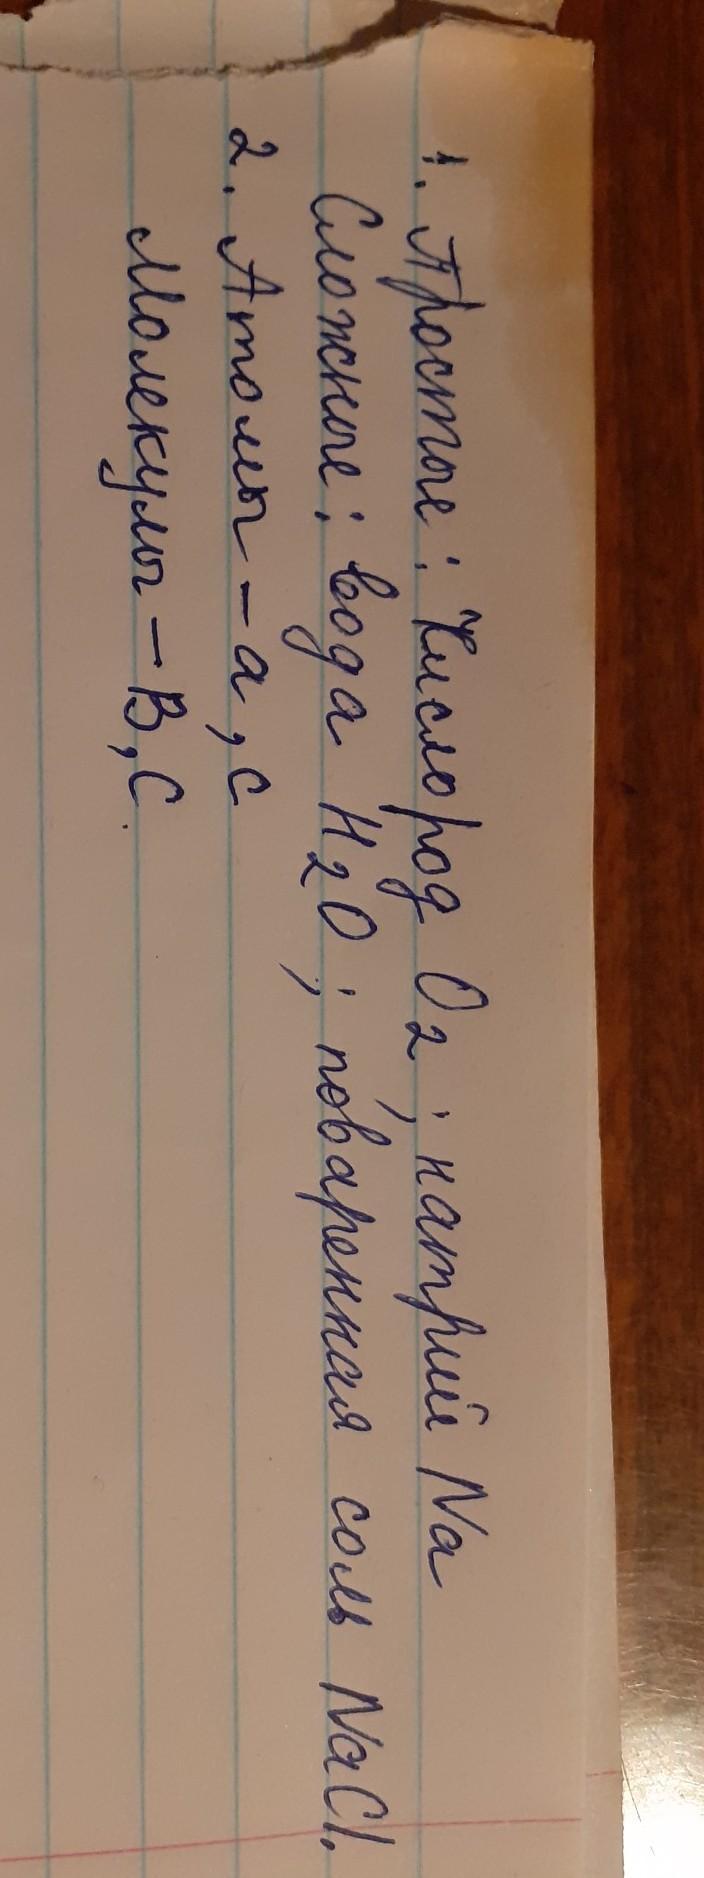 1. Простые: кислород O2; натрий Na
Сложные: вода H2O; поваренная соль NaCl.
2. Атомы – а, с
Молекулы – В, С.